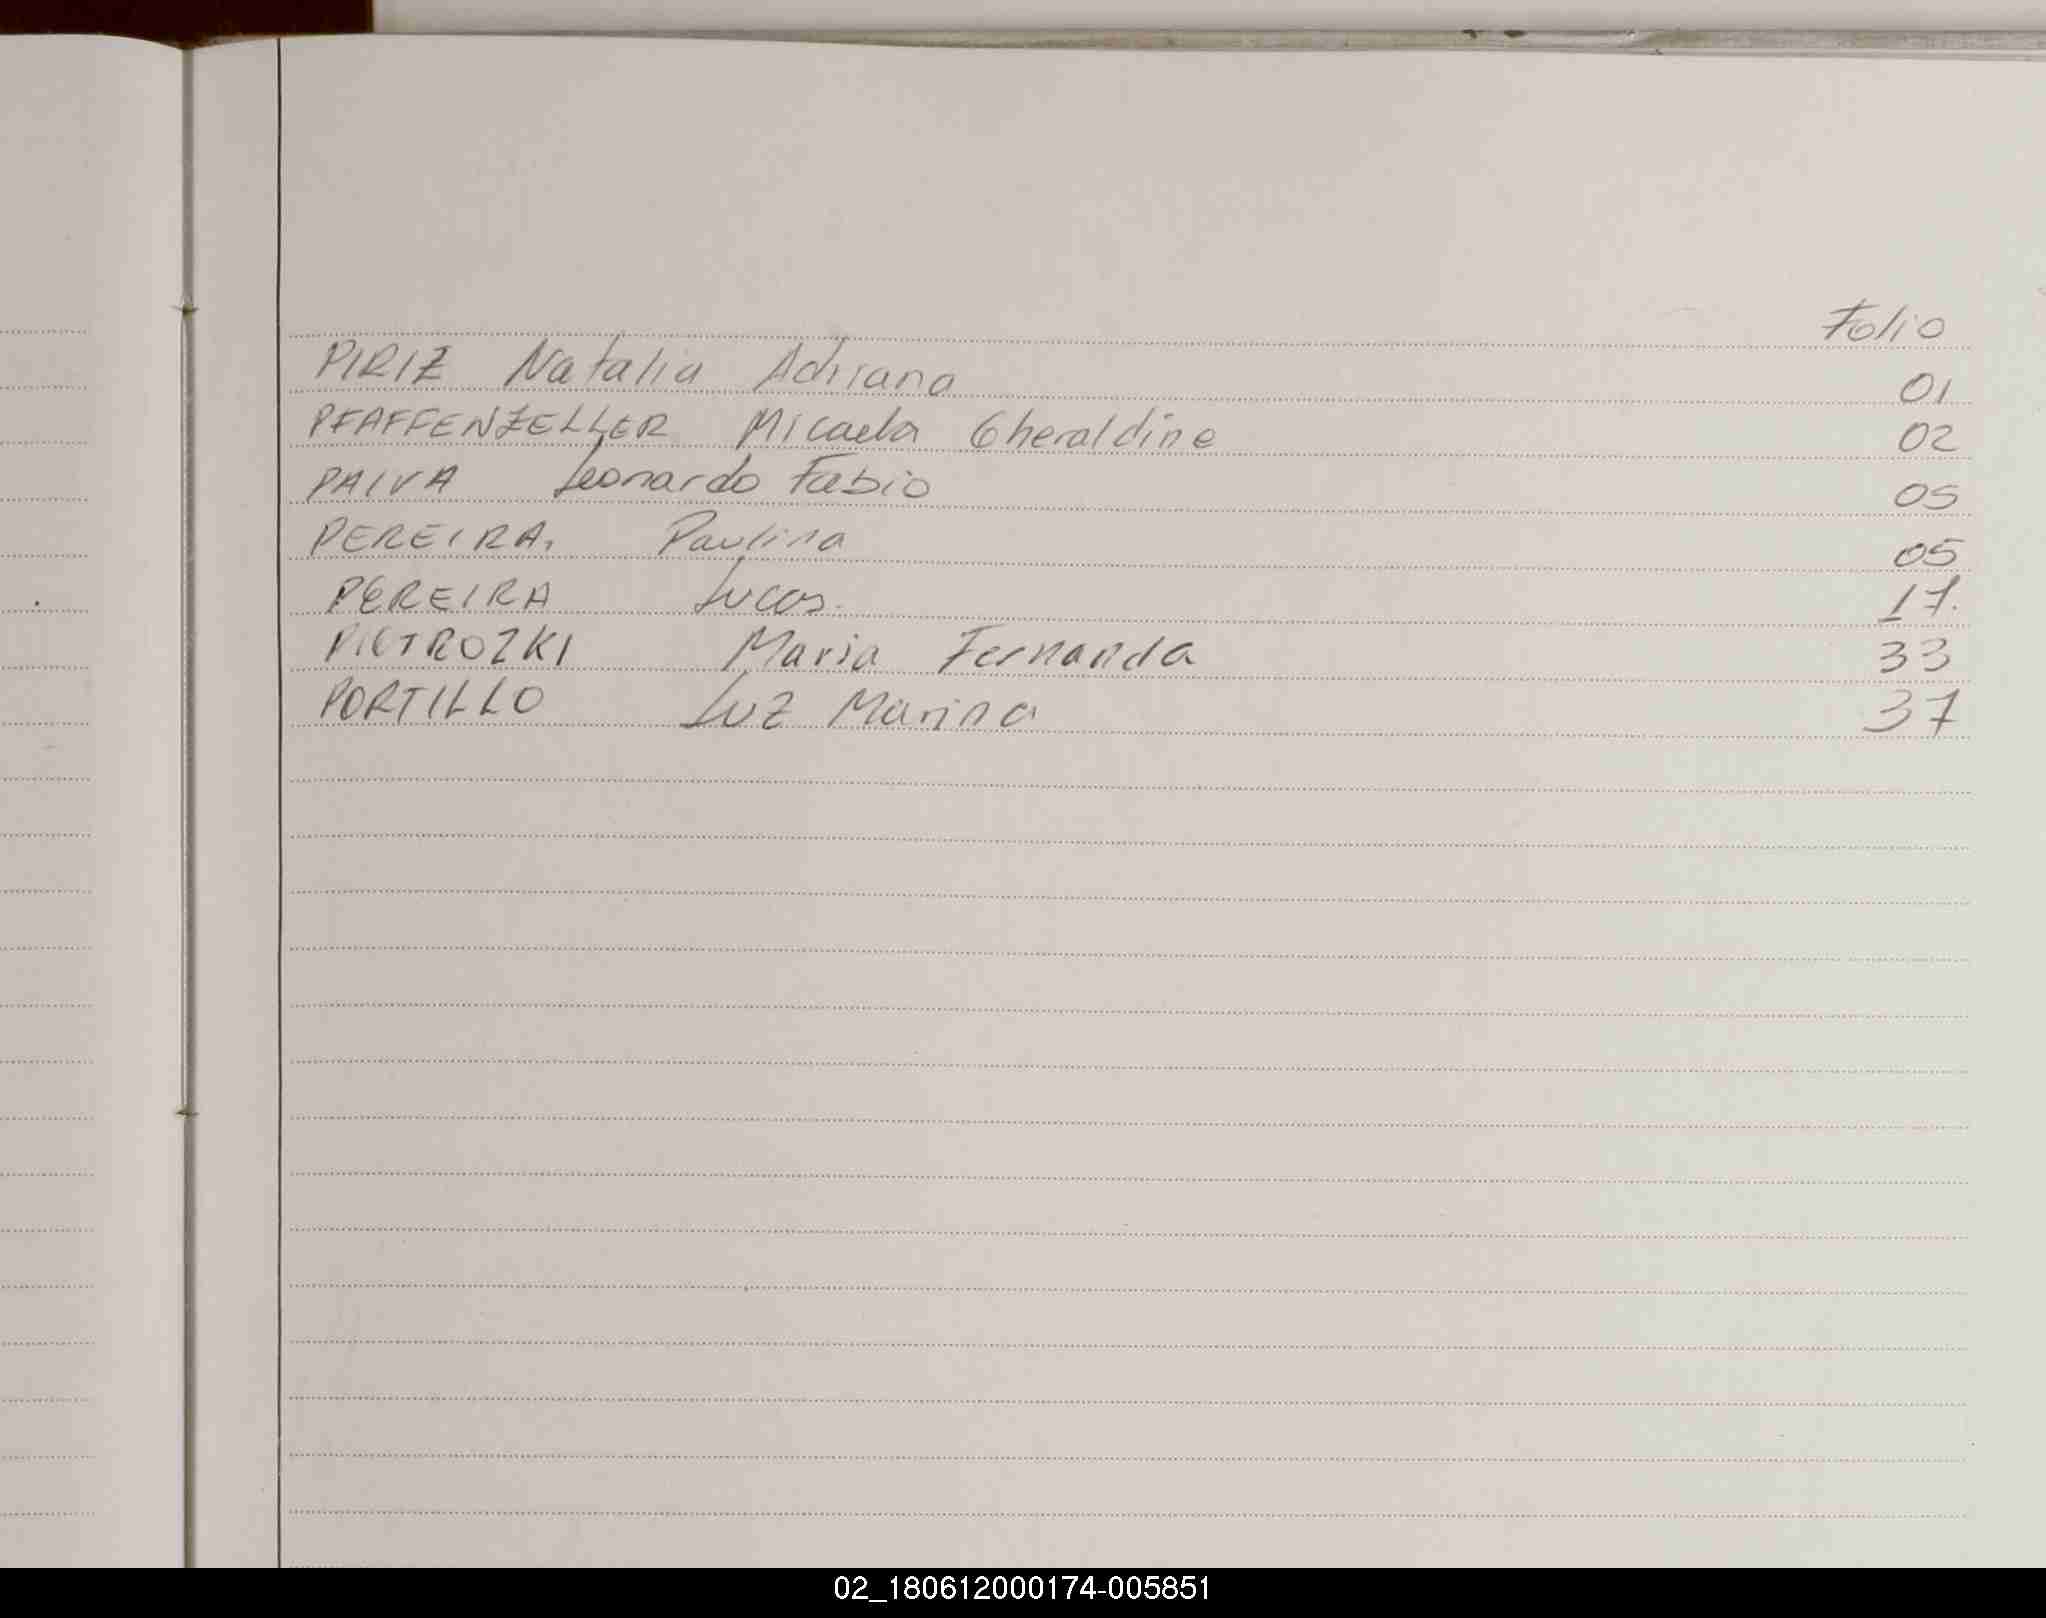 Folio
PIRIZ Natalia Adriana 01
PFAFFENZELLER Micaela Gheraldine 02
PAIVA Leonardo Fabio 05
PEREIRA, Paulina 05
PEREIRA Lucas. 17.
PIETROZKI Maria Fernanda 33
PORTILLO Luz Marina 37
02_180612000174-005851